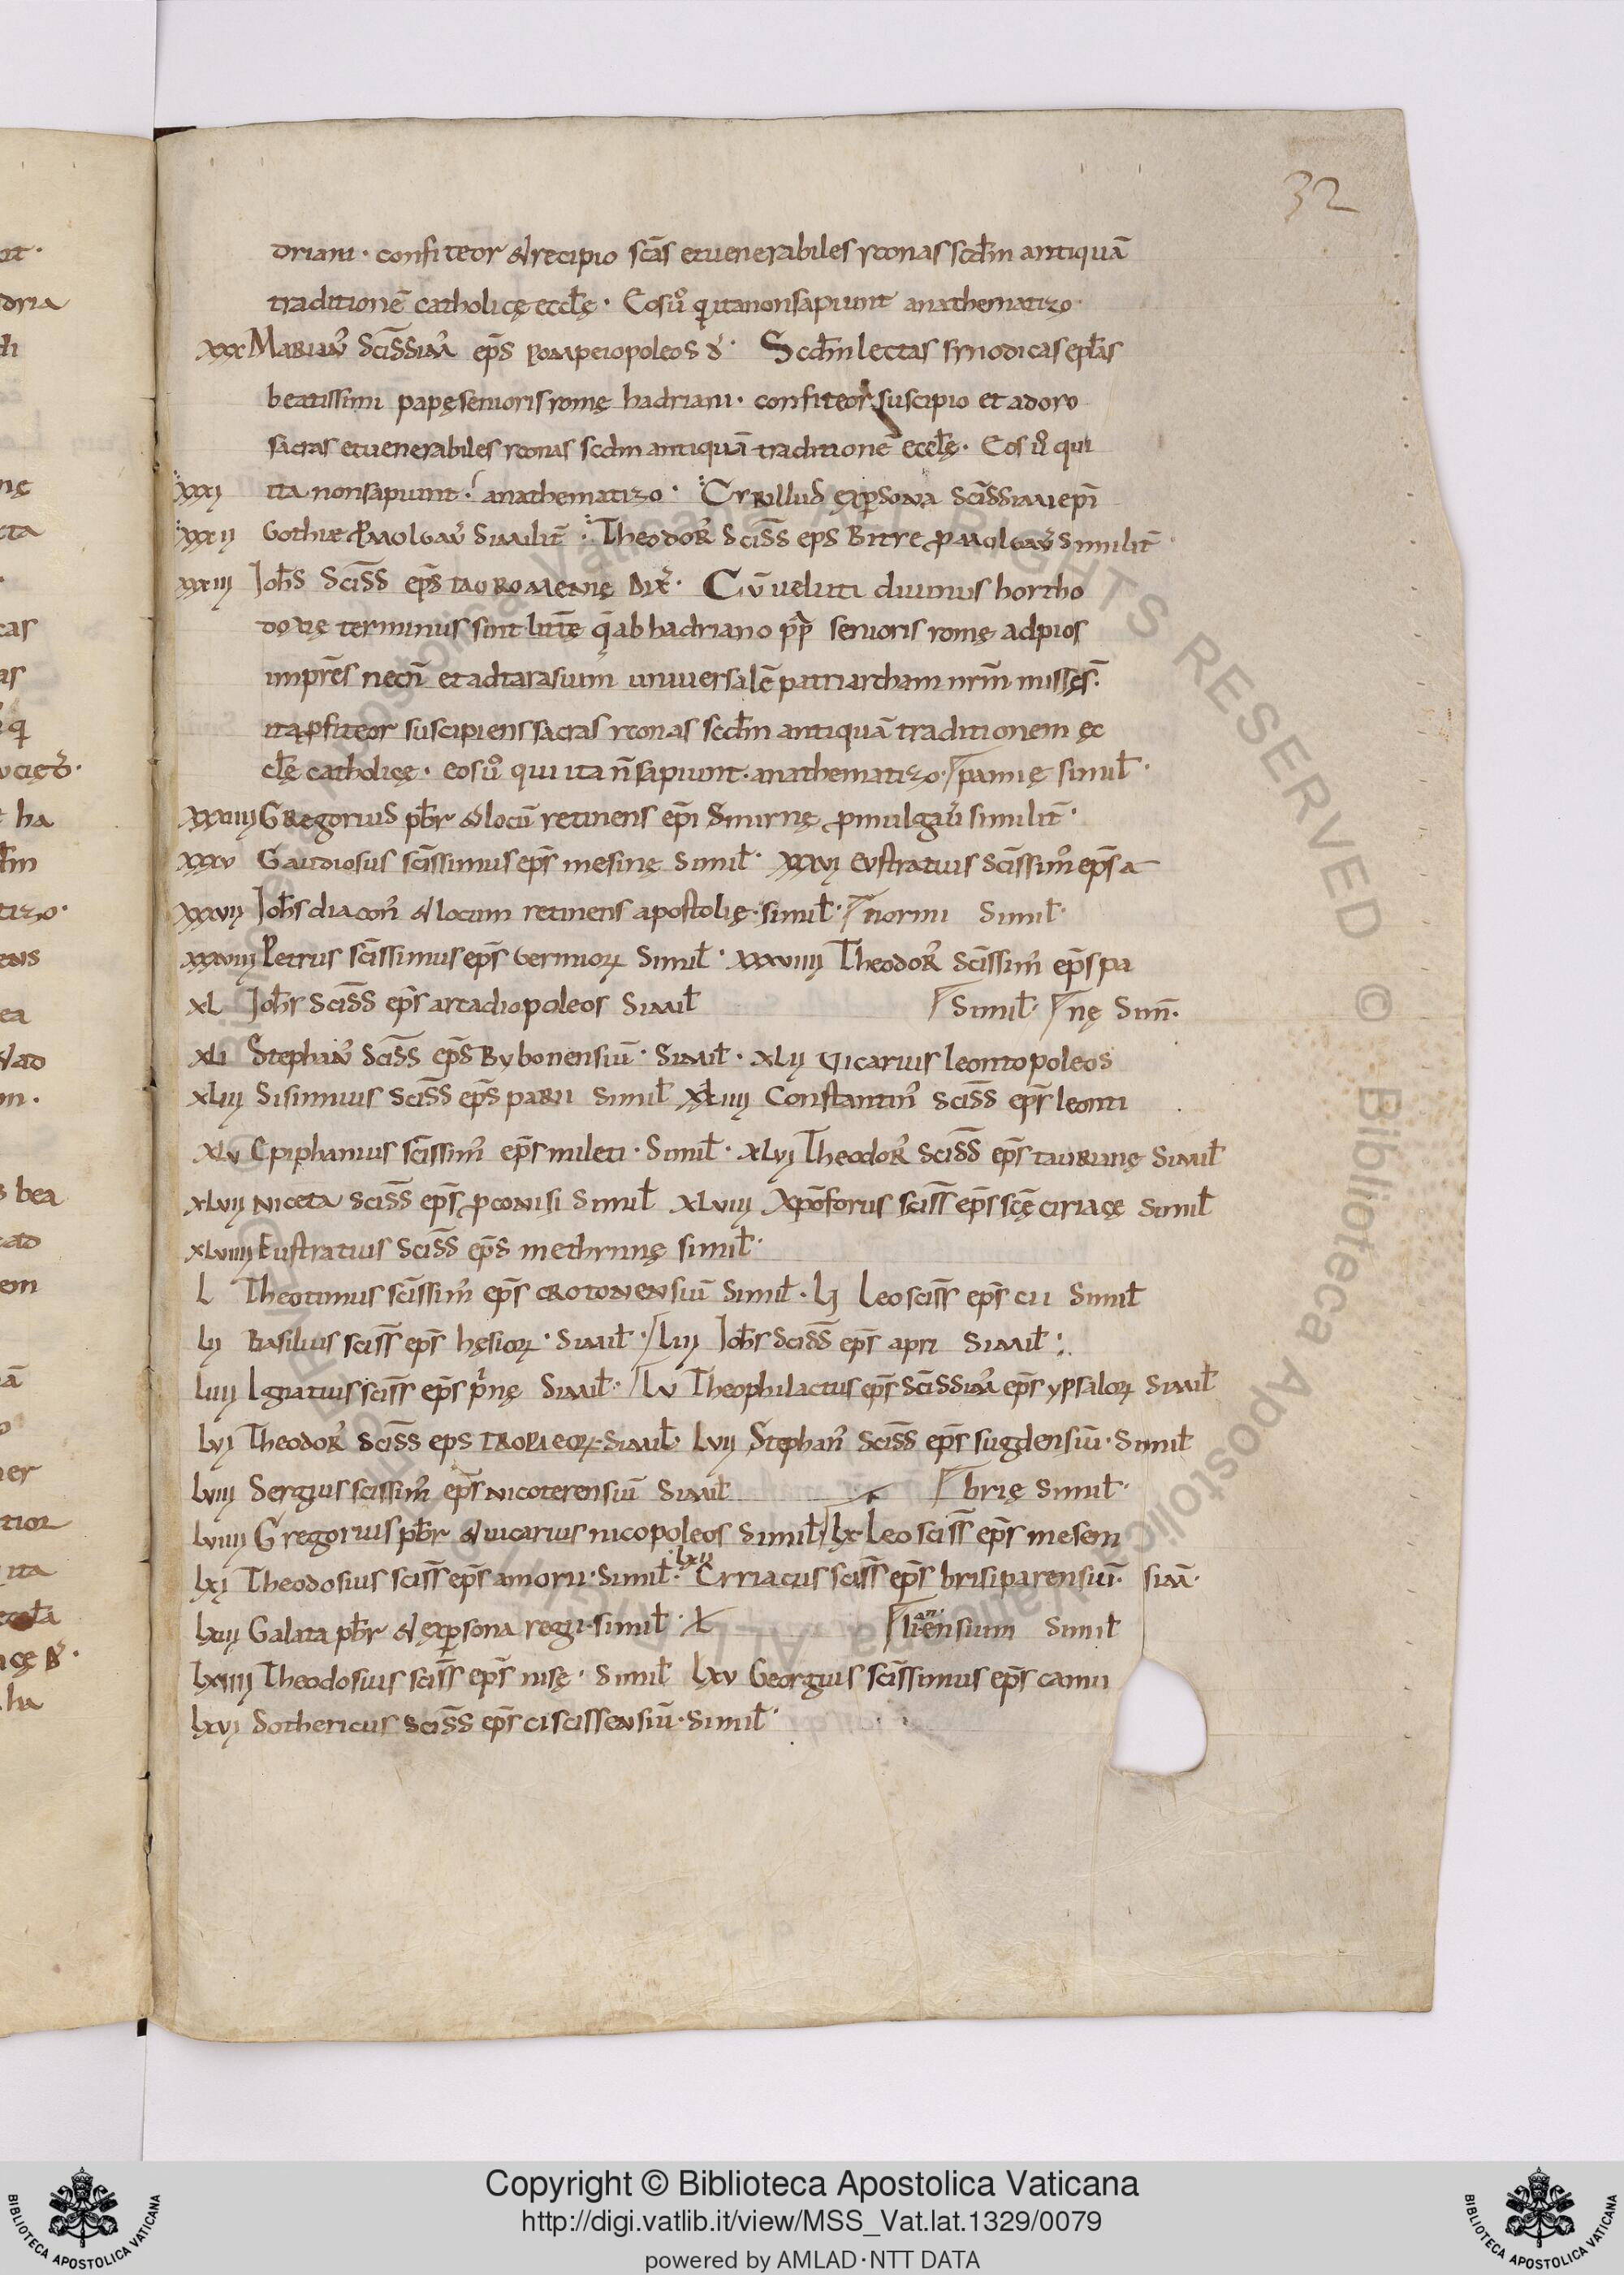 32
driani · confiteor & recipio scās et uenerabiles yconas scdm antiquā
traditionē catholicę ecclę · Eos ů q ita non sapiunt anathematizo ·
xxx Marian' scissim' eps pompeiopoleos d' · Scdm lectas synodicas eplas
beatissimi papę senioris romę hadriani · confiteor suscipio et adoro
sacras et uenerabiles yconas scdm antiquā traditionē ecclę · Eos ů qui
xxxi ita non sapiunt · anathematizo · Cyrillus ex psona scissimi epi
xxxii Gothie pmolgau' similit · Theodor' sciss eps Bitre pmolgau' similit
xxxiii Johs sciss eps tauromenię dix' · Cū veluti diuinus hortho
doxę terminus sint littę q ab hadriano pp senioris romę ad pios
impres necn et ad tarasium uniuersalē patriarcham nrm missęs ·
ita pfiteor suscipiens sacras yconas scdm antiquā traditionem ec
clę catholicę · eos ů qui ita n sapiunt · anathematizo · pamię simil ·
xxxiiii Gregorius pbr & locū retinens epi Smirnę pmulgau' similit ·
xxxv Gaudiosus scissimus eps mesinę simil · xxxvi Eustratius scissim' eps a
xxxvii Johs diacon' & locum retinens apostolię · simil · normi simil ·
xxxviii Petrus scissimus eps Germior' simil · xxxviiii Theodor' scissim' eps pa
xl Johs sciss eps arcadiopoleos simil simil · nę sim ·
xli Stephan' sciss eps Bybonensiū · simil · xlii Vicarius leontopoleos
xliii Sisinnius sciss eps parii simil xliiii Constantin' sciss eps leonti
xlv Epiphanius scissim' eps mileti · simil · xlvi Theodor' sciss eps taurianę simil
xlvii Niceta sciss eps pconisi simil xlviii Xpoforus sciss eps scę ciriacę simil
xlviiii Eustratius sciss eps methynnę simil ·
l Theotimus scissim' eps crotonensiū simil · li Leo sciss eps cii simil
lii Basilius sciss eps hęsior' · simil · liii Johs sciss eps apri simil :
liiii Ignatius sciss eps p'nę simil · lv Theophilactus eps scissim' eps ypsalor' simil
lvi Theodor' sciss eps tropieor' · simil · lvii Stephan' sciss eps sugdensiū · simil
lviii Sergius scissim' eps nicoterensiū simil brię simil ·
lviiii Gregorius pbr & uicarius nicopoleos simil lx Leo sciss eps mesem
lxi Theodosius sciss eps amorii · simil · lxii Cyriacus sciss eps brisiparensiū · sim ·
lxiii Galata pbr & ex psona regii · simil · lianensium simil
lxiiii Theodosius sciss eps nisę · simil lxv Georgius scissimus eps camii
lxvi Sothericus sciss eps ciscissensiū · simil ·
Copyright © Biblioteca Apostolica Vaticana
http://digi.vatlib.it/view/MSS_Vat.lat.1329/0079
powered by AMLAD·NTT DATA
BIBLIOTECA APOSTOLICA VATICANA
BIBLIOTECA APOSTOLICA VATICANA